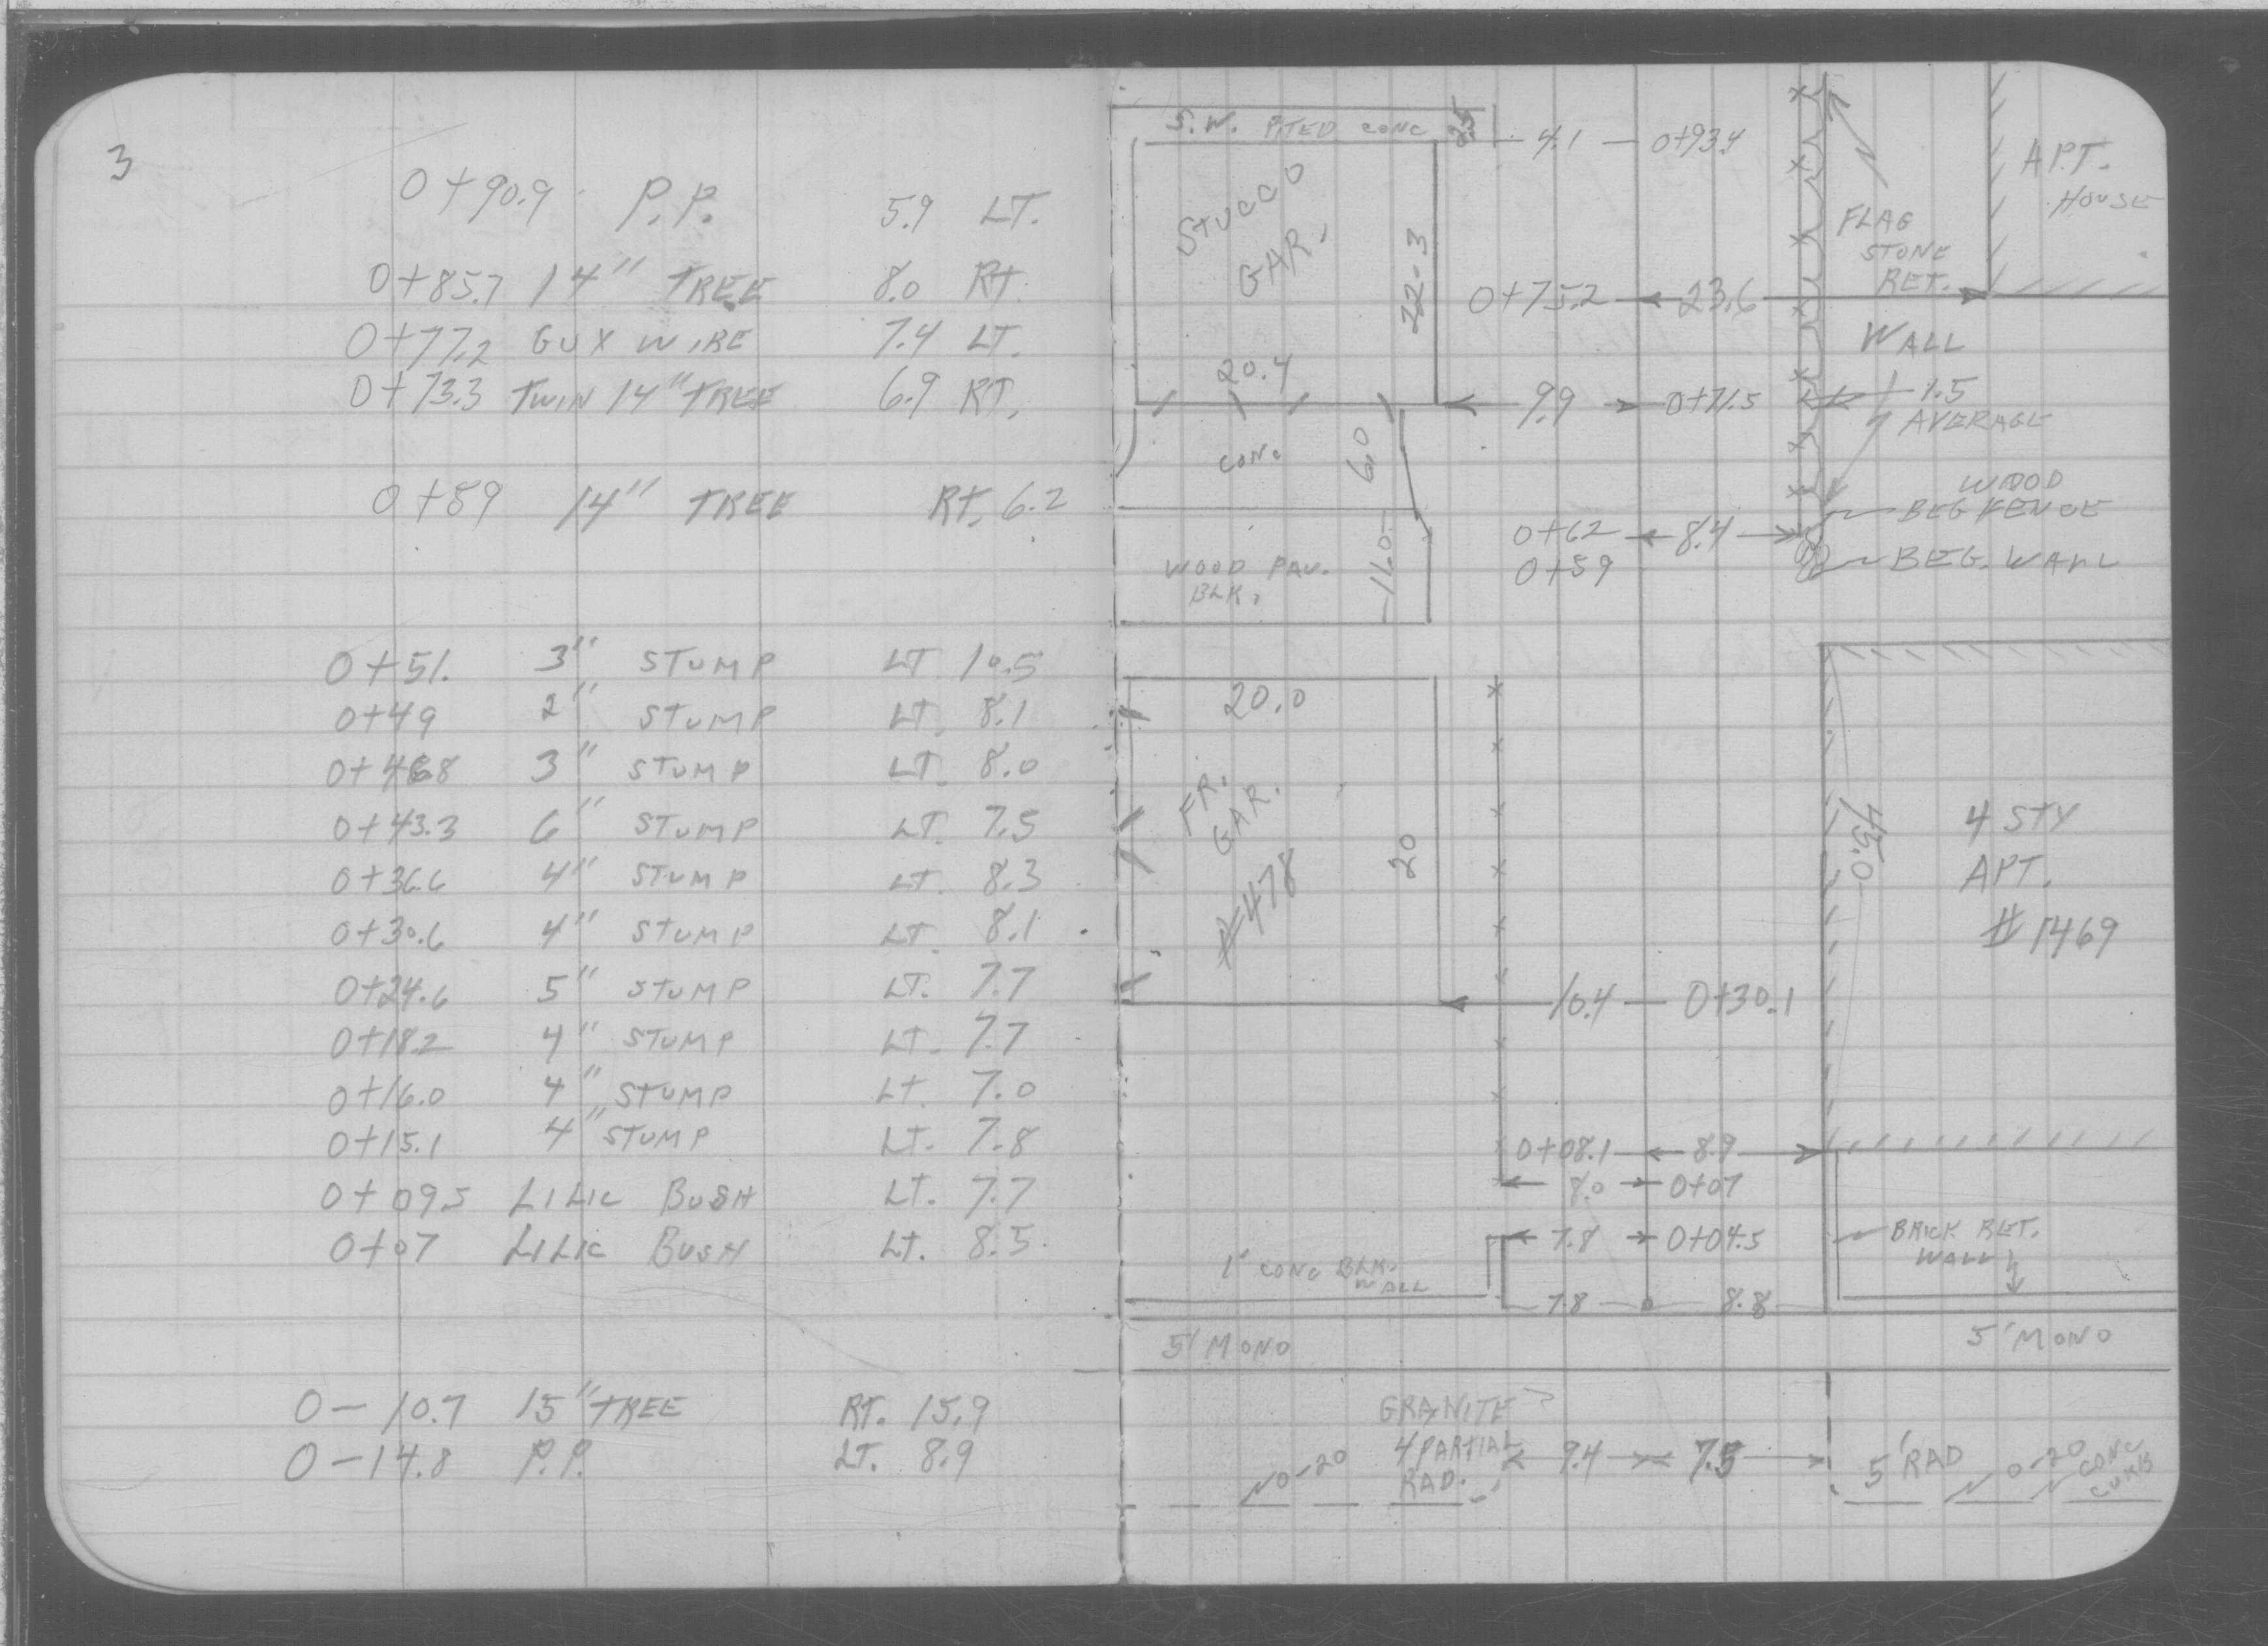 3
0+90.9 P.P. 5.9 LT.
0+85.7 14" TREE 8.0 RT.
0+77.2 GUY WIRE 7.4 LT.
0+73.3 TWIN 14" TREE 6.9 RT.
0+59 14" TREE RT. 6.2
0+51. 3" STUMP LT 10.5
0+49 2" STUMP LT. 8.1
0+46.8 3" STUMP LT. 8.0
0+43.3 6" STUMP LT. 7.5
0+36.6 4" STUMP LT. 8.3
0+30.6 4" STUMP LT. 8.1
0+24.6 5" STUMP LT. 7.7
0+18.2 4" STUMP LT. 7.7
0+16.0 4" STUMP LT. 7.0
0+15.1 4" STUMP LT. 7.8
0+09.5 LILIC BUSH LT. 7.7
0+07 LILIC BUSH LT. 8.5
0-10.7 15" TREE RT. 15.9
0-14.8 P.P. LT. 8.9
S.W. PITED CONC
4.1 0+93.4
STUCCO
GAR.
22.3
20.4
APT.
HOUSE
FLAG
STONE
RET.
WALL
0+75.2 23.6
9.9 0+71.5 1.5
AVERAGE
CONC
6.0
WOOD
BEG FENCE
0+62 8.4
0+59
BEG. WALL
WOOD PAV.
BLK.
11.0
20.0
FR.
GAR.
#478
20
45.0
4 STY
APT.
#1469
10.4 0+30.1
0+08.1 8.9
8.0 0+07
7.8 0+04.5
BRICK RET.
WALL
1' CONC BLK.
WALL
7.8 8.8
5' MONO
5' MONO
GRANITE
4 PARTIAL
RAD.
0-20
9.4 7.5
5' RAD
0-20
CONC
CURB